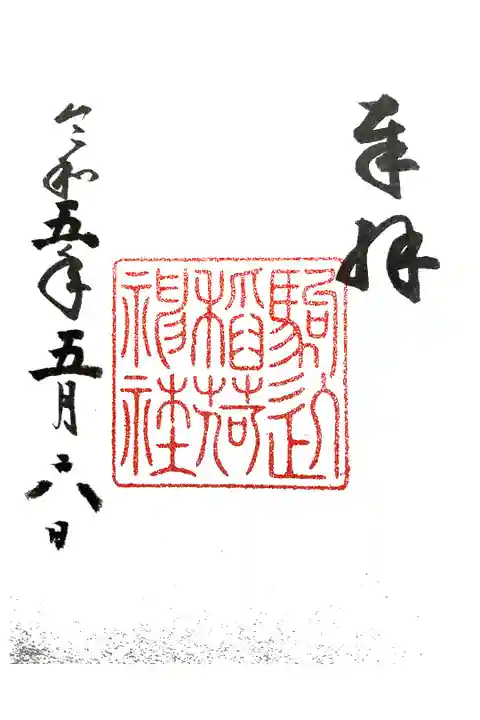 奉拝
駒込
稲荷
神社
令和五年五月六日